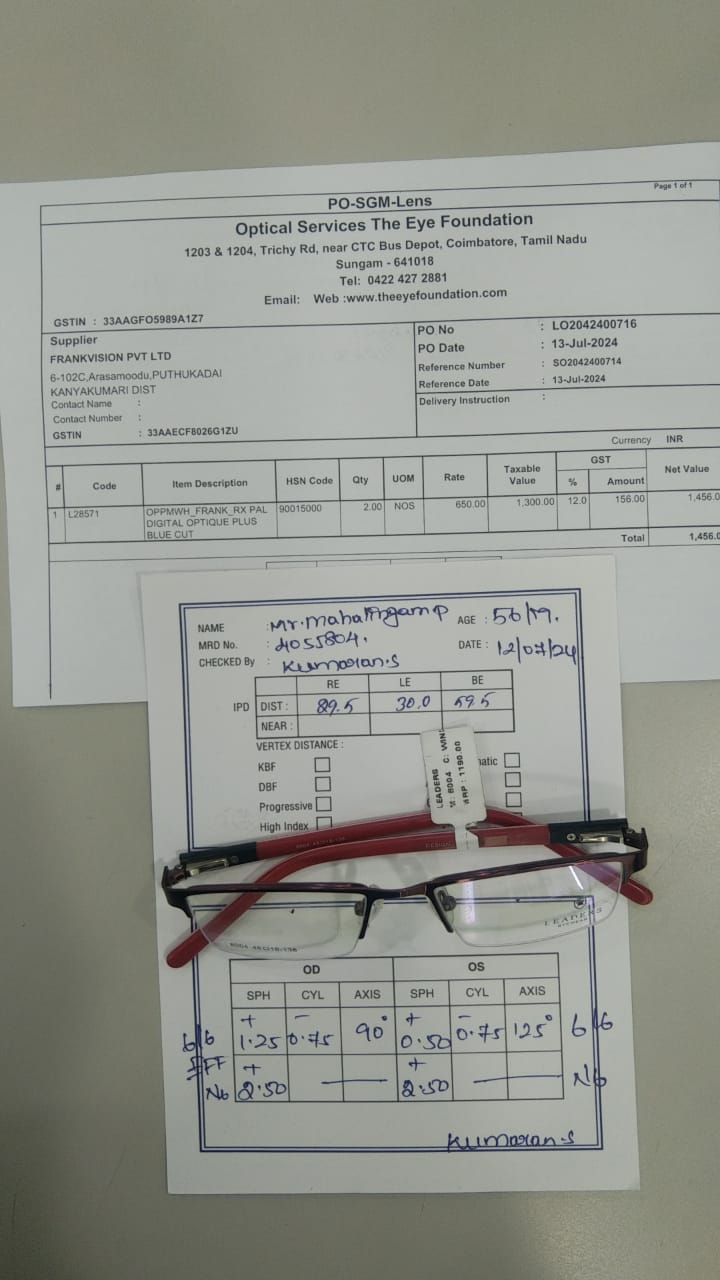 Page 1 of 1
PO-SGM-Lens
Optical Services The Eye Foundation
1203 & 1204, Trichy Rd, near CTC Bus Depot, Coimbatore, Tamil Nadu
Sungam - 641018
Tel: 0422 427 2881
Email: Web :www.theeyefoundation.com
GSTIN : 33AAGFO5989A1Z7
Supplier
FRANKVISION PVT LTD
6-102C,Arasamoodu,PUTHUKADAI
KANYAKUMARI DIST
Contact Name :
Contact Number :
GSTIN : 33AAECF8026G1ZU
PO No : LO2042400716
PO Date : 13-Jul-2024
Reference Number : SO2042400714
Reference Date : 13-Jul-2024
Delivery Instruction :
Currency INR
# Code Item Description HSN Code Qty UOM Rate Taxable Value GST % Amount Net Value
1 L28571 OPPMWH_FRANK_RX PAL 90015000 2.00 NOS 650.00 1,300.00 12.0 156.00 1,456.0
DIGITAL OPTIQUE PLUS
BLUE CUT
Total 1,456.0
NAME : Mr. Mahalingam P AGE : 56/M.
MRD No. : 4055804.
CHECKED By : Kumaran.S DATE : 12/07/24
RE LE BE
IPD DIST : 29.5 30.0 59.5
NEAR :
VERTEX DISTANCE :
KBF
DBF
Progressive
High Index
matic
LEADERS
M: 6004 C: WIN
MRP : 1190.00
DESIGN
LEADERS
OD OS
SPH CYL AXIS SPH CYL AXIS
6/6 +1.25 -0.75 90° +0.50 -0.75 125° 6/6
N6 +2.50 — +2.50 — N6
Kumaran.S